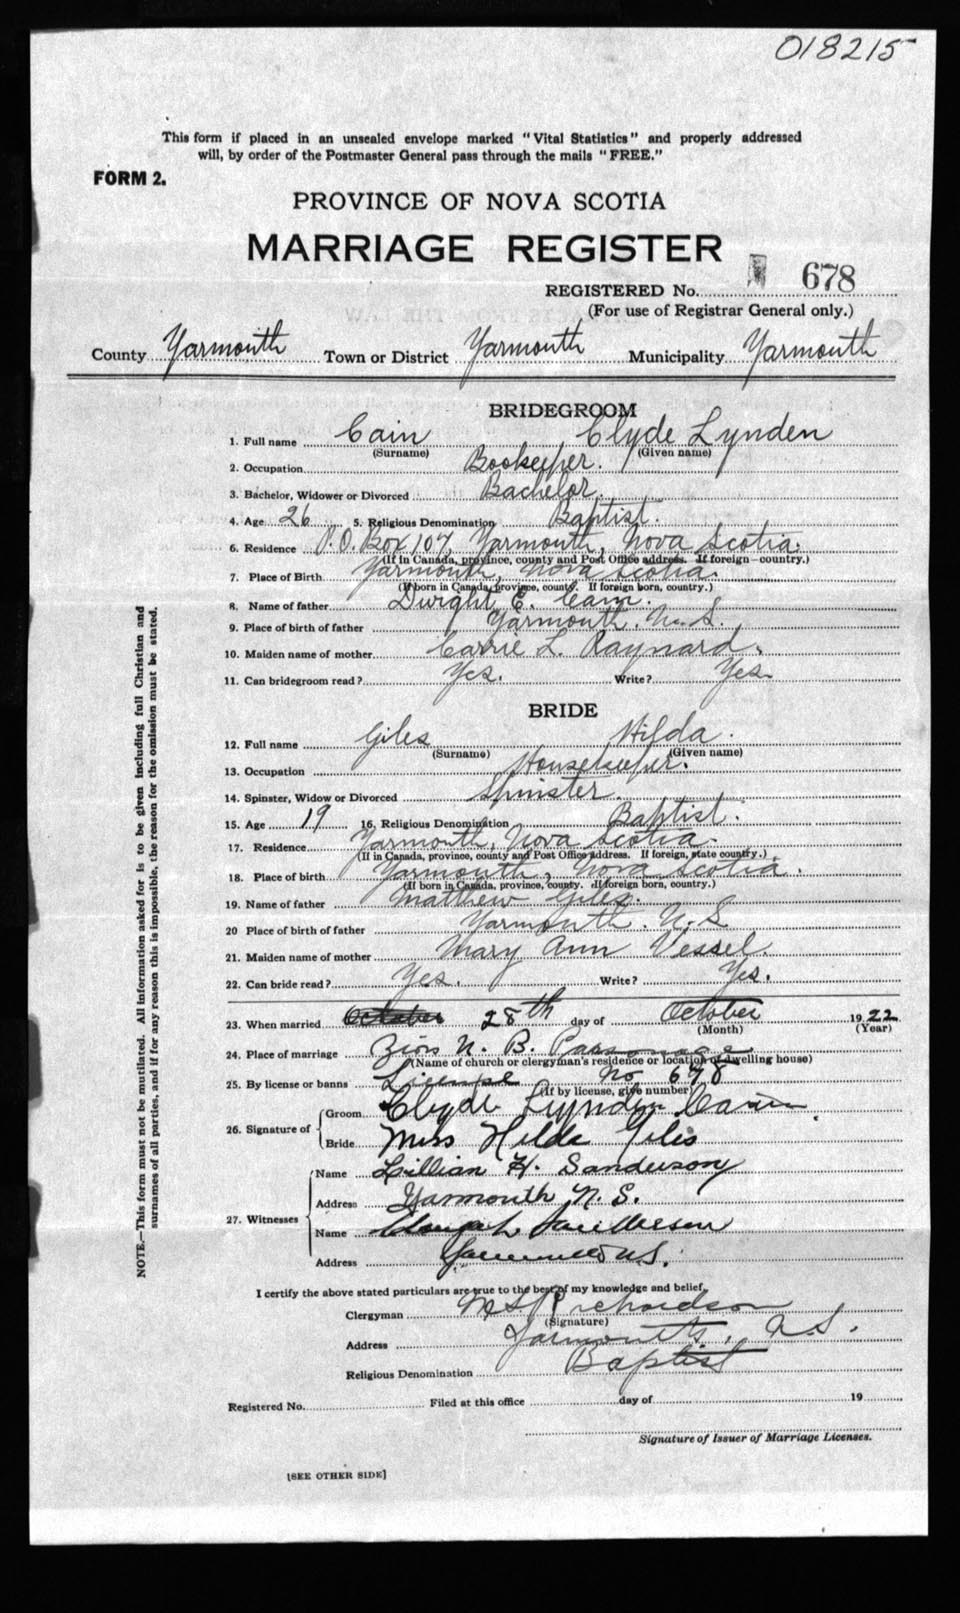 018215
This form if placed in an unsealed envelope marked "Vital Statistics" and properly addressed
will, by order of the Postmaster General pass through the mails "FREE."
FORM 2.
PROVINCE OF NOVA SCOTIA
MARRIAGE REGISTER
REGISTERED No. 678
(For use of Registrar General only.)
County Yarmouth Town or District Yarmouth Municipality Yarmouth
BRIDEGROOM
1. Full name Cain Clyde Lynden
(Surname) (Given name)
2. Occupation Bookeeper.
3. Bachelor, Widower or Divorced Bachelor.
4. Age 26 5. Religious Denomination Baptist.
6. Residence P.O. Box 107, Yarmouth, Nova Scotia.
(If in Canada, province, county and Post Office address. If foreign—country.)
7. Place of Birth Yarmouth, Nova Scotia.
(If born in Canada, province, county. If foreign born, country.)
8. Name of father Dwight E. Cain.
9. Place of birth of father Yarmouth. N.S.
10. Maiden name of mother Carrie L. Raynard.
11. Can bridegroom read? Yes. Write? Yes.
BRIDE
12. Full name Giles Hilda.
(Surname) (Given name)
13. Occupation Housekeeper.
14. Spinster, Widow or Divorced Spinster.
15. Age 19 16. Religious Denomination Baptist.
17. Residence Yarmouth, Nova Scotia.
(If in Canada, province, county and Post Office address. If foreign, state country.)
18. Place of birth Yarmouth, Nova Scotia.
(If born in Canada, province, county. If foreign born, country.)
19. Name of father Matthew Giles.
20 Place of birth of father Yarmouth. N.S
21. Maiden name of mother Mary Ann Vessel.
22. Can bride read? Yes. Write? Yes.
23. When married October 28th day of October 1922
(Month) (Year)
24. Place of marriage Zion U. B. Parsonage
(Name of church or clergyman's residence or location of dwelling house)
25. By license or banns License No 678
(If by license, give number)
26. Signature of Groom Clyde Lynden Cain.
Bride Miss Hilda Giles
27. Witnesses Name Lillian H. Sanderson
Address Yarmouth N. S.
Name Sanderson
Address Yarmouth N.S.
I certify the above stated particulars are true to the best of my knowledge and belief,
Clergyman Richardson
(Signature)
Address Yarmouth, N.S.
Religious Denomination Baptist
Registered No. Filed at this office day of 19
Signature of Issuer of Marriage Licenses.
[SEE OTHER SIDE]
NOTE.—This form must not be mutilated. All information asked for is to be given including full Christian and
surnames of all parties, and if for any reason this is impossible, the reason for the omission must be stated.